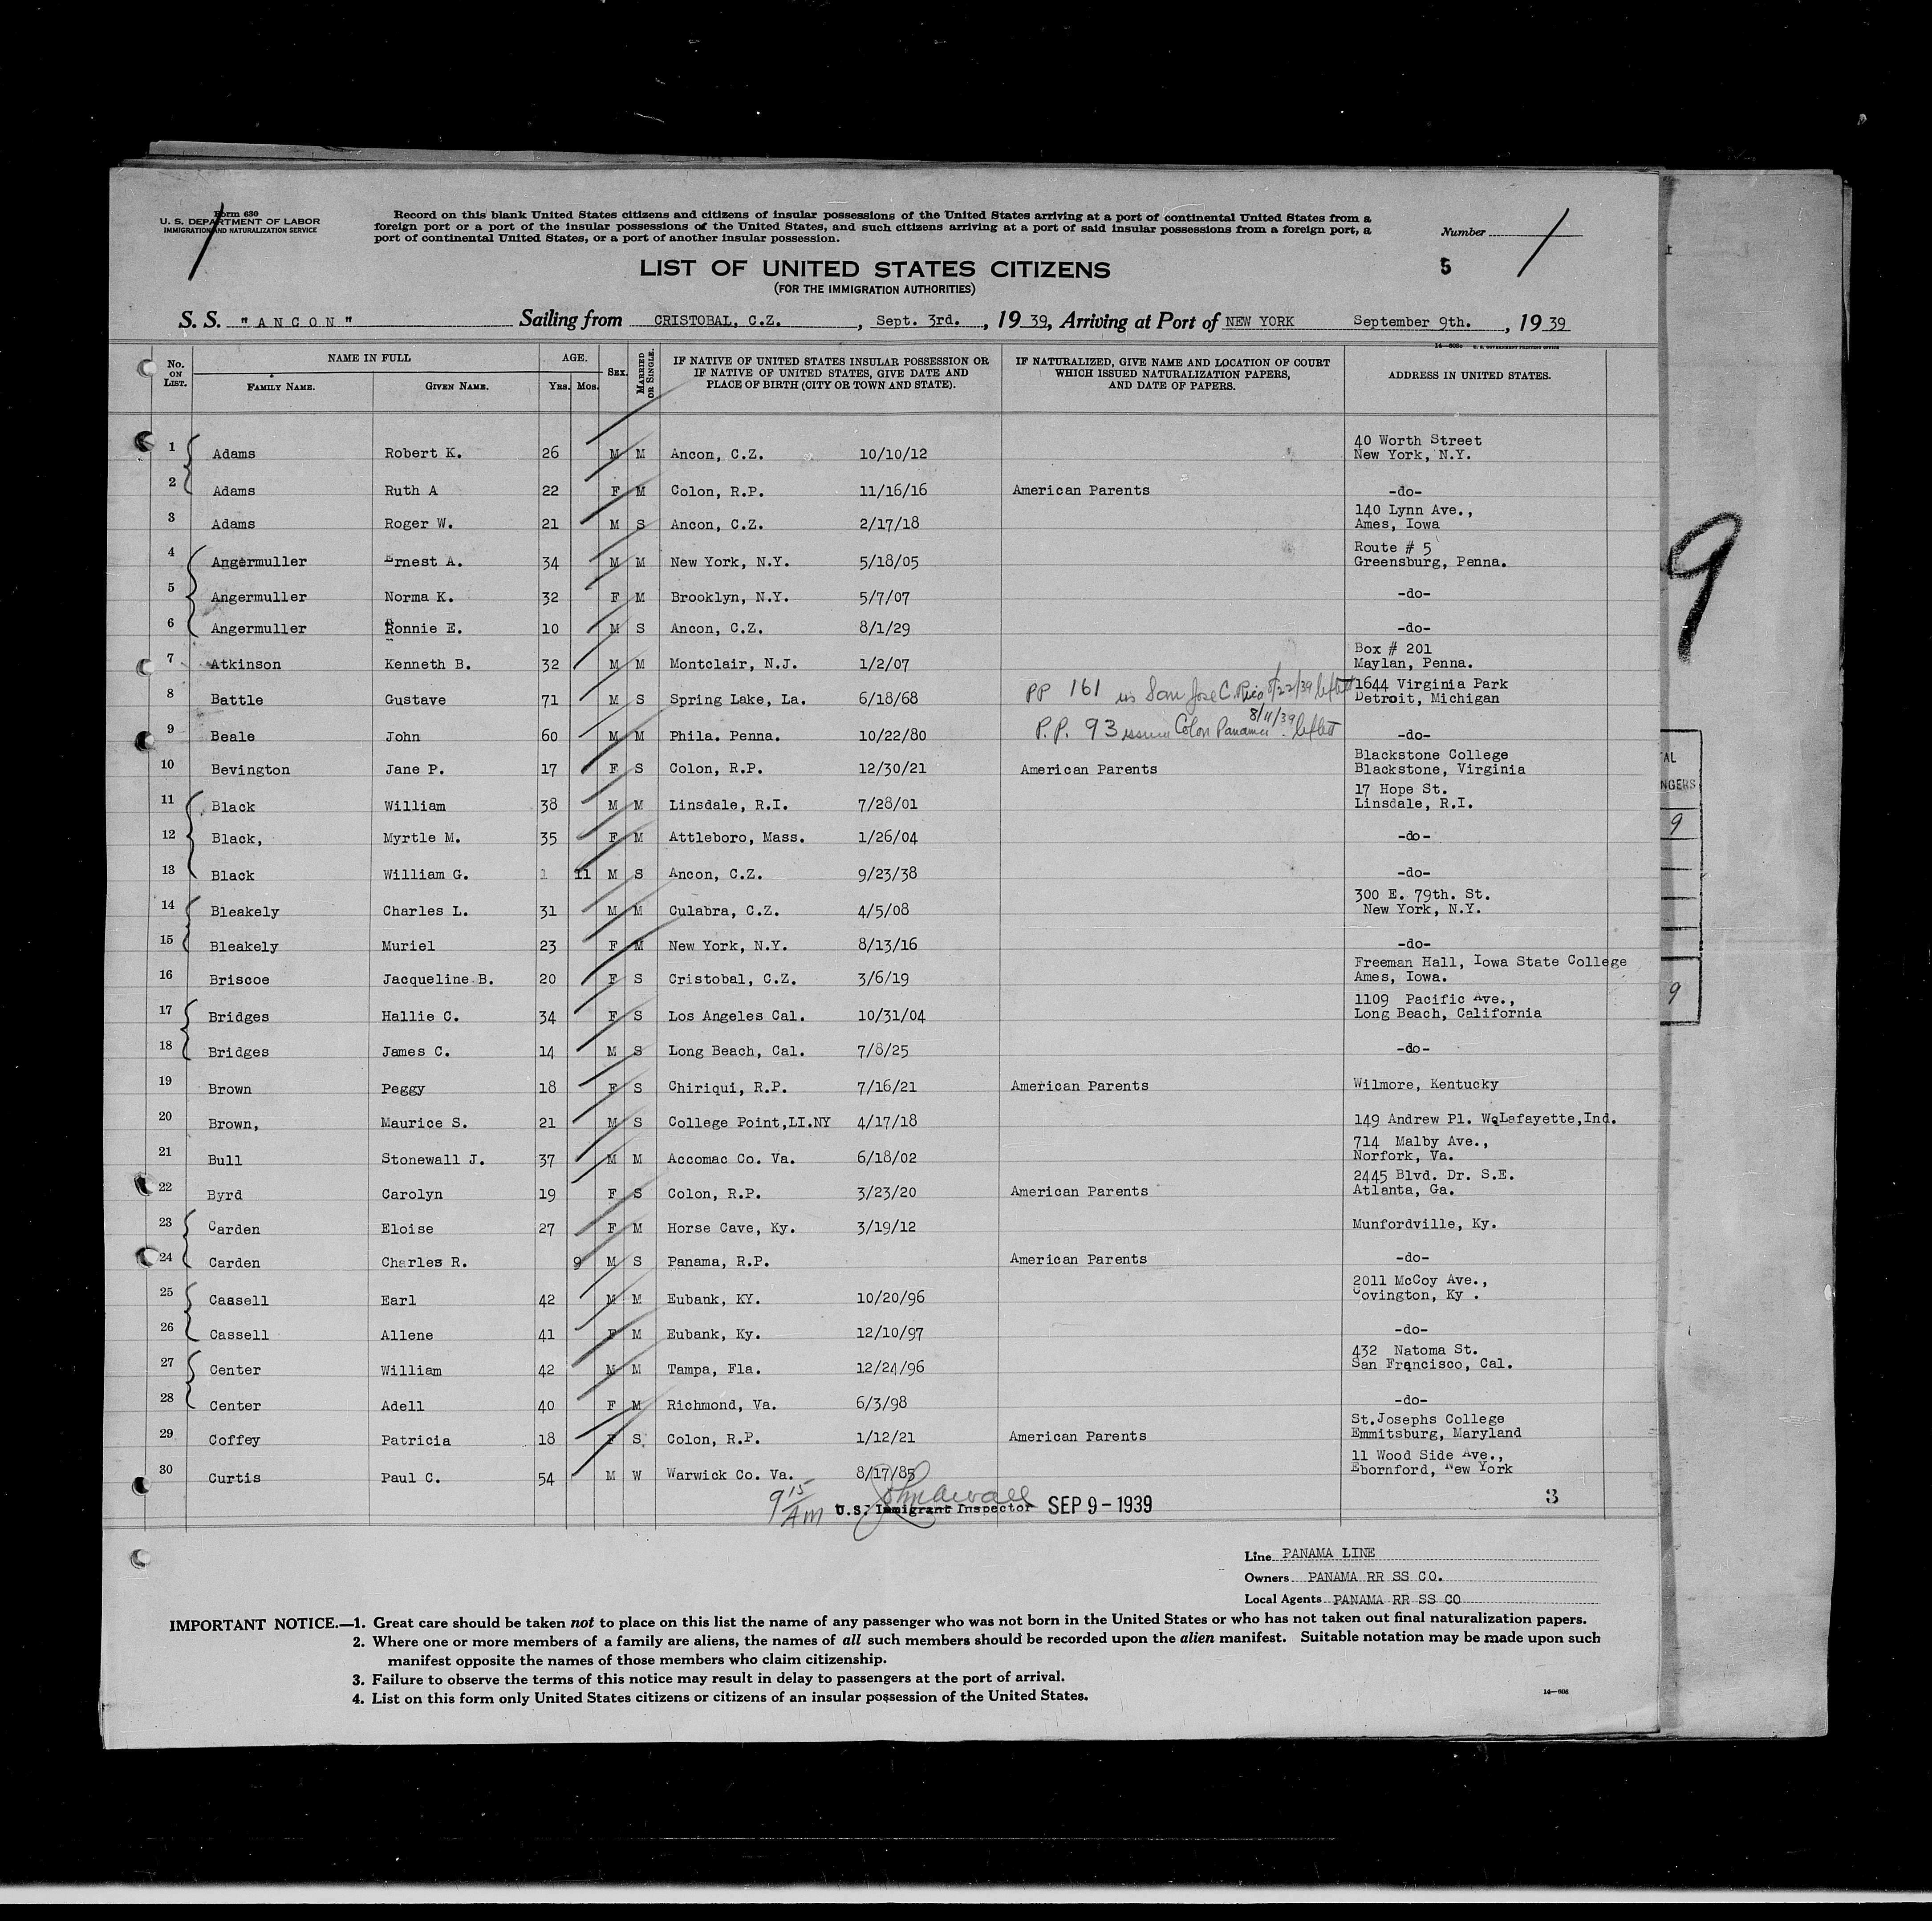 Form 630
U. S. DEPARTMENT OF LABOR
IMMIGRATION AND NATURALIZATION SERVICE
Record on this blank United States citizens and citizens of insular possessions of the United States arriving at a port of continental United States from a
foreign port or a port of the insular possessions of the United States, and such citizens arriving at a port of said insular possessions from a foreign port, a
port of continental United States, or a port of another insular possession.
Number
LIST OF UNITED STATES CITIZENS
5
(FOR THE IMMIGRATION AUTHORITIES)
S. S. "ANCON" Sailing from CRISTOBAL, C.Z., Sept. 3rd., 1939, Arriving at Port of NEW YORK September 9th., 1939
No. ON LIST. NAME IN FULL FAMILY NAME. GIVEN NAME. AGE. Yrs. Mos. SEX. MARRIED OR SINGLE. IF NATIVE OF UNITED STATES INSULAR POSSESSION OR IF NATIVE OF UNITED STATES, GIVE DATE AND PLACE OF BIRTH (CITY OR TOWN AND STATE). IF NATURALIZED, GIVE NAME AND LOCATION OF COURT WHICH ISSUED NATURALIZATION PAPERS, AND DATE OF PAPERS. ADDRESS IN UNITED STATES.
1 Adams Robert K. 26 M M Ancon, C.Z. 10/10/12 40 Worth Street New York, N.Y.
2 Adams Ruth A 22 F M Colon, R.P. 11/16/16 American Parents -do-
3 Adams Roger W. 21 M S Ancon, C.Z. 2/17/18 140 Lynn Ave., Ames, Iowa
4 Angermuller Ernest A. 34 M M New York, N.Y. 5/18/05 Route # 5 Greensburg, Penna.
5 Angermuller Norma K. 32 F M Brooklyn, N.Y. 5/7/07 -do-
6 Angermuller Ronnie E. 10 M S Ancon, C.Z. 8/1/29 -do-
7 Atkinson Kenneth B. 32 M M Montclair, N.J. 1/2/07 Box # 201 Maylan, Penna.
8 Battle Gustave 71 M S Spring Lake, La. 6/18/68 PP 161 San Jose C. Rica 8/22/39 1644 Virginia Park Detroit, Michigan
9 Beale John 60 M M Phila. Penna. 10/22/80 P.P. 93 Colon Panama 8/11/39 -do-
10 Bevington Jane P. 17 F S Colon, R.P. 12/30/21 American Parents Blackstone College Blackstone, Virginia
11 Black William 38 M M Linsdale, R.I. 7/28/01 17 Hope St. Linsdale, R.I.
12 Black, Myrtle M. 35 F M Attleboro, Mass. 1/26/04 -do-
13 Black William G. 1 11 M S Ancon, C.Z. 9/23/38 -do-
14 Bleakely Charles L. 31 M M Culabra, C.Z. 4/5/08 300 E. 79th. St. New York, N.Y.
15 Bleakely Muriel 23 F M New York, N.Y. 8/13/16 -do-
16 Briscoe Jacqueline B. 20 F S Cristobal, C.Z. 3/6/19 Freeman Hall, Iowa State College Ames, Iowa.
17 Bridges Hallie C. 34 F S Los Angeles Cal. 10/31/04 1109 Pacific Ave., Long Beach, California
18 Bridges James C. 14 M S Long Beach, Cal. 7/8/25 -do-
19 Brown Peggy 18 F S Chiriqui, R.P. 7/16/21 American Parents Wilmore, Kentucky
20 Brown, Maurice S. 21 M S College Point,LI.NY 4/17/18 149 Andrew Pl. W.Lafayette,Ind.
21 Bull Stonewall J. 37 M M Accomac Co. Va. 6/18/02 714 Malby Ave., Norfork, Va.
22 Byrd Carolyn 19 F S Colon, R.P. 3/23/20 American Parents 2445 Blvd. Dr. S.E. Atlanta, Ga.
23 Carden Eloise 27 F M Horse Cave, Ky. 3/19/12 Munfordville, Ky.
24 Carden Charles R. 9 M S Panama, R.P. American Parents -do-
25 Cassell Earl 42 M M Eubank, KY. 10/20/96 2011 McCoy Ave., Covington, Ky .
26 Cassell Allene 41 F M Eubank, Ky. 12/10/97 -do-
27 Center William 42 M M Tampa, Fla. 12/24/96 432 Natoma St. San Francisco, Cal.
28 Center Adell 40 F M Richmond, Va. 6/3/98 -do-
29 Coffey Patricia 18 F S. Colon, R.P. 1/12/21 American Parents St.Josephs College Emmitsburg, Maryland
30 Curtis Paul C. 54 M W Warwick Co. Va. 8/17/85 11 Wood Side Ave., Ebornford, New York
9 15 AM U.S. Immigrant Inspector SEP 9 - 1939
3
Line PANAMA LINE
Owners PANAMA RR SS CO.
Local Agents PANAMA RR SS CO
IMPORTANT NOTICE.—1. Great care should be taken not to place on this list the name of any passenger who was not born in the United States or who has not taken out final naturalization papers.
2. Where one or more members of a family are aliens, the names of all such members should be recorded upon the alien manifest. Suitable notation may be made upon such
manifest opposite the names of those members who claim citizenship.
3. Failure to observe the terms of this notice may result in delay to passengers at the port of arrival.
4. List on this form only United States citizens or citizens of an insular possession of the United States.
9
9
9